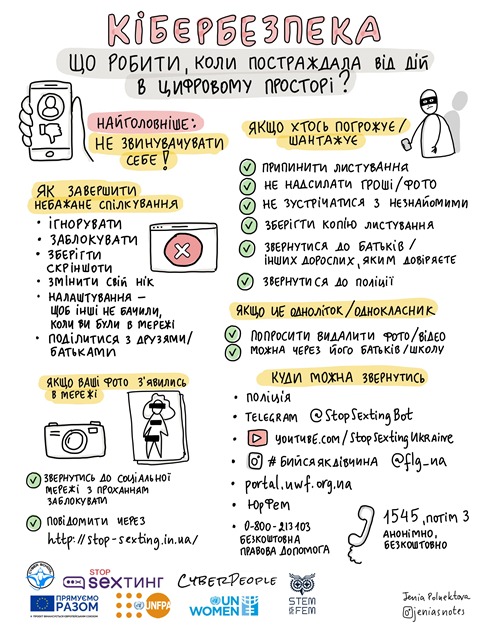 КІБЕРБЕЗПЕКА
ЩО РОБИТИ, КОЛИ ПОСТРАЖДАЛА ВІД ДІЙ
В ЦИФРОВОМУ ПРОСТОРІ?
НАЙГОЛОВНІШЕ:
НЕ ЗВИНУВАЧУВАТИ
СЕБЕ!
ЯК ЗАВЕРШИТИ
НЕБАЖАНЕ СПІЛКУВАННЯ
• ІГНОРУВАТИ
• ЗАБЛОКУВАТИ
• ЗБЕРЕГТИ
СКРІНШОТИ
• ЗМІНИТИ СВІЙ НІК
• НАЛАШТУВАННЯ —
ЩОБ ІНШІ НЕ БАЧИЛИ,
КОЛИ ВИ БУЛИ В МЕРЕЖІ
• ПОДІЛИТИСЯ З ДРУЗЯМИ/
БАТЬКАМИ
ЯКЩО ХТОСЬ ПОГРОЖУЄ/
ШАНТАЖУЄ
ПРИПИНИТИ ЛИСТУВАННЯ
НЕ НАДСИЛАТИ ГРОШІ/ФОТО
НЕ ЗУСТРІЧАТИСЯ З НЕЗНАЙОМИМИ
ЗБЕРІГТИ КОПІЮ ЛИСТУВАННЯ
ЗВЕРНУТИСЯ ДО БАТЬКІВ/
ІНШИХ ДОРОСЛИХ, ЯКИМ ДОВІРЯЄТЕ
ЗВЕРНУТИСЯ ДО ПОЛІЦІЇ
ЯКЩО ЦЕ ОДНОЛІТОК/ОДНОКЛАСНИК
ПОПРОСИТИ ВИДАЛИТИ ФОТО/ВІДЕО
МОЖНА ЧЕРЕЗ ЙОГО БАТЬКІВ/ШКОЛУ
ЯКЩО ВАШІ ФОТО З'ЯВИЛИСЬ
В МЕРЕЖІ
ЗВЕРНУТИСЬ ДО СОЦІАЛЬНОЇ
МЕРЕЖІ З ПРОХАННЯМ
ЗАБЛОКУВАТИ
ПОВІДОМИТИ ЧЕРЕЗ
http://stop-sexting.in.ua/
КУДИ МОЖНА ЗВЕРНУТИСЬ
• ПОЛІЦІЯ
• TELEGRAM @StopSextingBot
• youtube.com/StopSextingUkraine
• #БИЙСЯЯКДІВЧИНА @flg_ua
• portal.uwf.org.ua
• ЮрФем
• 0-800-213103
БЕЗКОШТОВНА
ПРАВОВА ДОПОМОГА
1545, потім 3
АНОНІМНО,
БЕЗКОШТОВНО
STOP
SEXТИНГ
CYBERPEOPLE
ПРЯМУЄМО
РАЗОМ
UNFPA
UN
WOMEN
STEM
FEM
Jenia Poluektova
@jeniasnotes